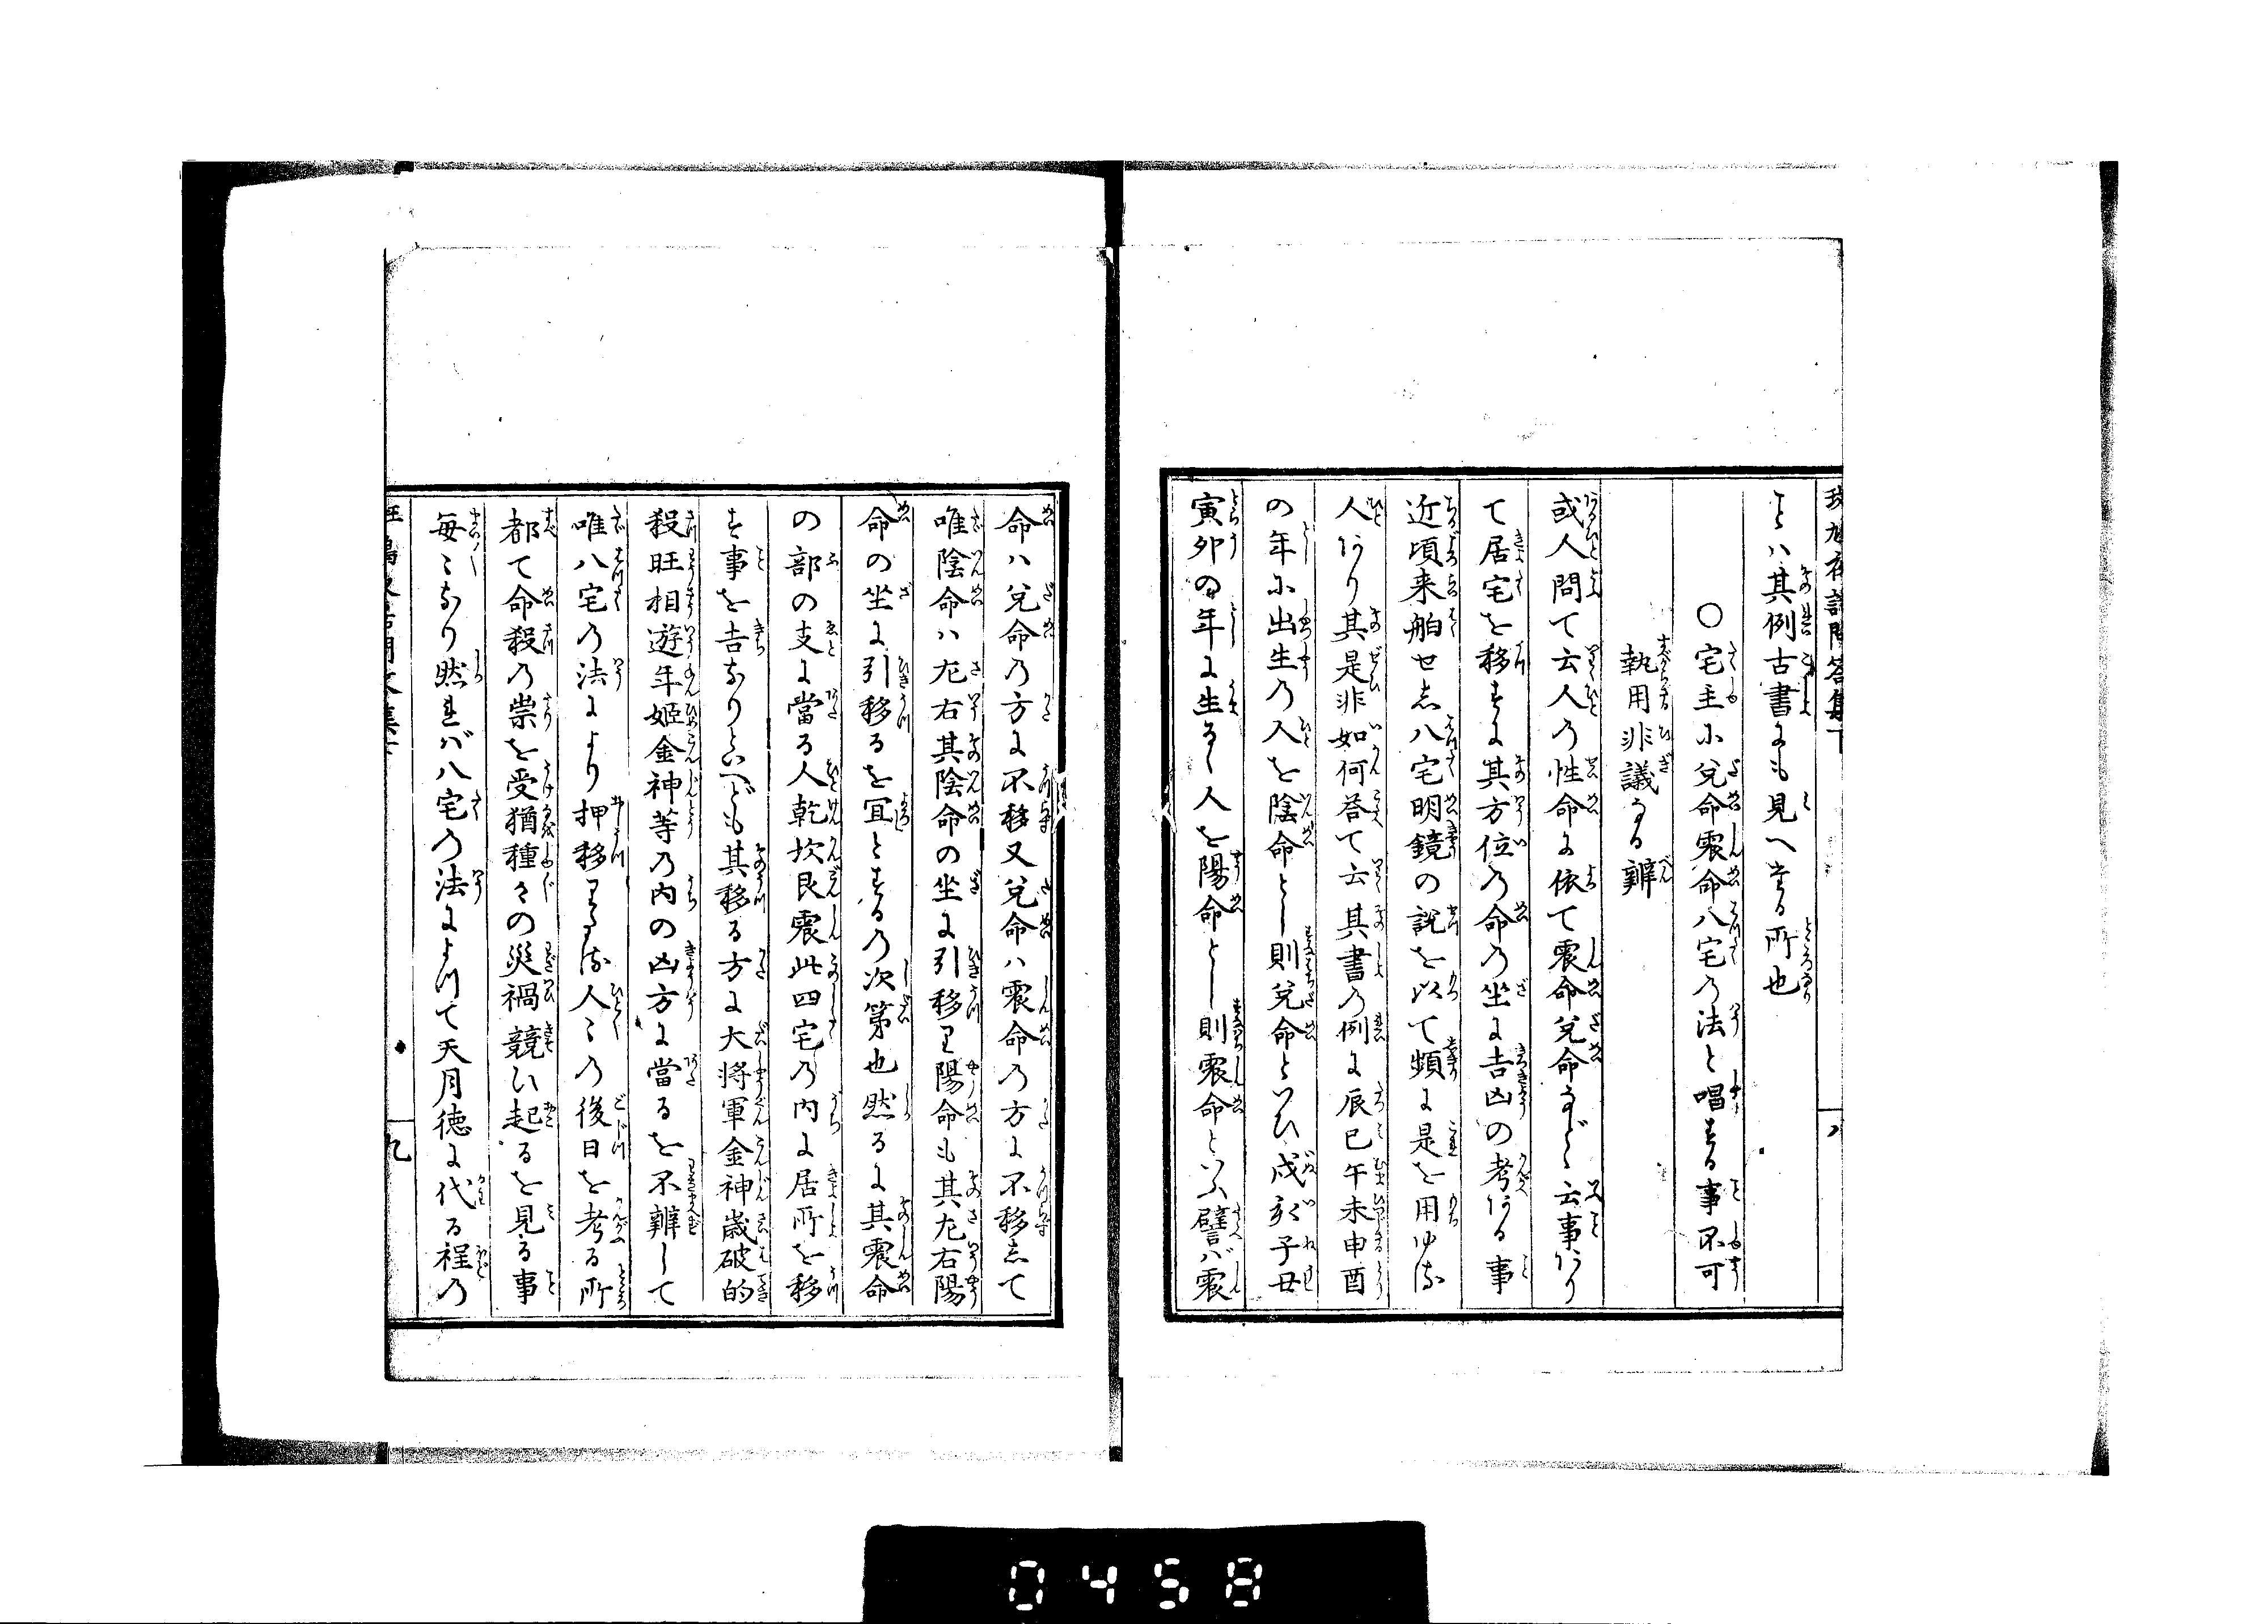 とハ其例古書にも見へたる所也
〇宅主に兌命震命八宅乃法と唱る事不可
執用非議なる辨
或人問て云人乃性命に依て震命兌命など云事あり
て居宅を移すに其方位乃命乃坐に吉凶の考ある事
近頃来舶せし八宅明鏡の説を以て頻に是を用ゆる
人あり其是非如何答て云其書乃例に辰巳午未申酉
の年に出生乃人を陰命とし則兌命といひ戌亥子丑
寅卯の年に生るゝ人を陽命とし則震命といふ譬バ震
命ハ兌命乃方に不移又兌命ハ震命乃方に不移して
唯陰命ハ左右其陰命の坐に引移り陽命も其左右陽
命の坐に引移るを宜とする乃次第也然るに其震命
の部の支に當る人乾坎艮震此四宅乃内に居所を移
す事を吉なりといへども其移る方に大将軍金神歳破的
殺旺相遊年姫金神等乃内の凶方に當るを不辨して
唯八宅乃法により押移りたる人〻乃後日を考る所
都て命殺乃祟を受猶種々の災禍競ひ起るを見る事
毎〻なり然れバ八宅乃法によつて天月徳に代る程乃
八
九
0458